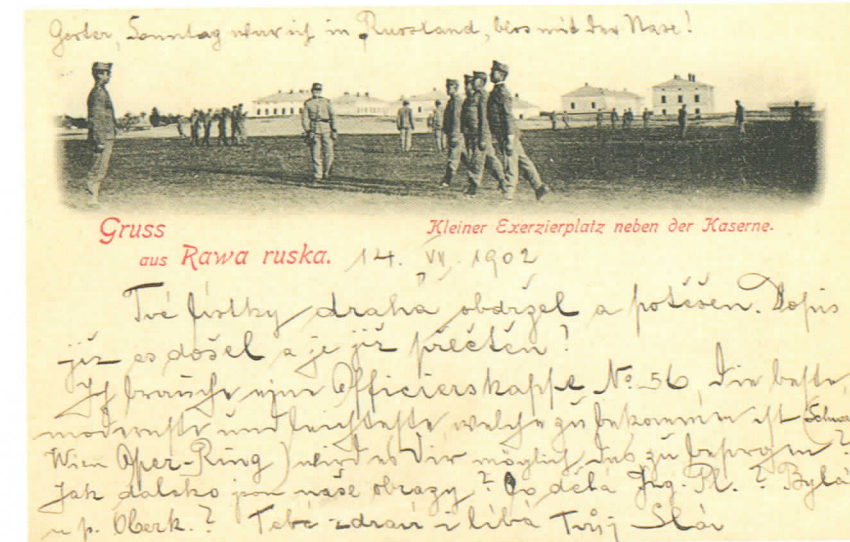 Gestern, Sonntag war ich in Russland, blos mit der Nase!
Gruss
aus Rawa ruska.
Kleiner Exerzierplatz neben der Kaserne.
14. VII. 1902
Tvé lístky drahá obdržel a potěšen. Dopis
již as došel a je již přečtěn?
Ich brauche eine Officierskappe No 56, die beste,
modernste und leichteste welche zu bekommen ist
Wien Oper-Ring) wird es Dir möglich das zu besorgen?
Jak daleko jsou naše obrazy? Co dělá Ing. Pl.? Byla
u p. Oberk.? Tebe zdraví i líbá Tvůj